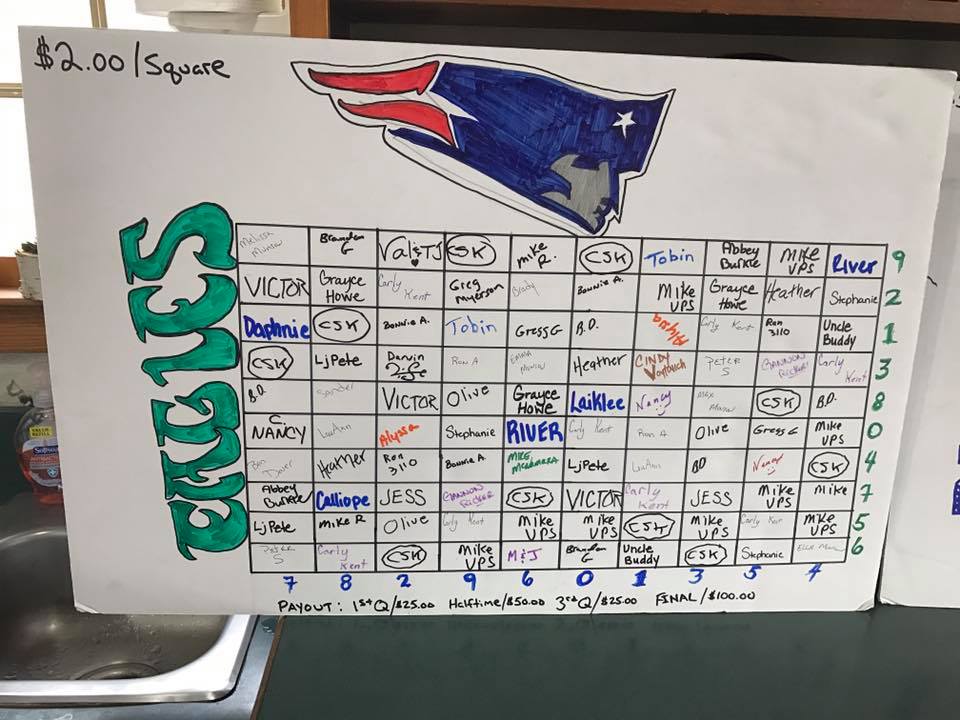 $2.00/Square
EAGLES
Melissa Munson Brandon G Val & TJ CSK mike R. CSK Tobin Abbey Burkle Mike UPS River 9
VICTOR Grayce Howe Carly Kent Greg Mayerson Brady Bonnie A. Mike UPS Grayce Howe Heather Stephanie 2
Daphnie CSK Bonnie A. Tobin Gregg G B.D. Alyssa Carly Kent Ron 3110 Uncle Buddy 1
CSK LjPete Darvin Ron A Emma Munson Heather CINDY Peter S Carly Kent 3
B.D. VICTOR Olive Grayce Howe Laiklee Nancy Max Munson CSK B.D. 8
C NANCY LuAnn Alyssa Stephanie RIVER Carly Kent Ron A Olive Gregg G Mike UPS 0
Heather Ron 3110 Bonnie A. MIKE McNamara LjPete LuAnn BD Nancy CSK 4
Abbey Burkle Calliope JESS CSK VICTOR Carly Kent JESS Mike UPS Mike 7
LjPete Mike R Olive Carly Kent Mike UPS Mike UPS CSK Mike UPS Carly Kent Mike UPS 5
Peter S Carly Kent CSK Mike UPS M&J Brandon G Uncle Buddy CSK Stephanie 6
7 8 2 9 6 0 1 3 5 4
PAYOUT: 1st Q/$25.00 Halftime/$50.00 3rd Q/$25.00 FINAL/$100.00